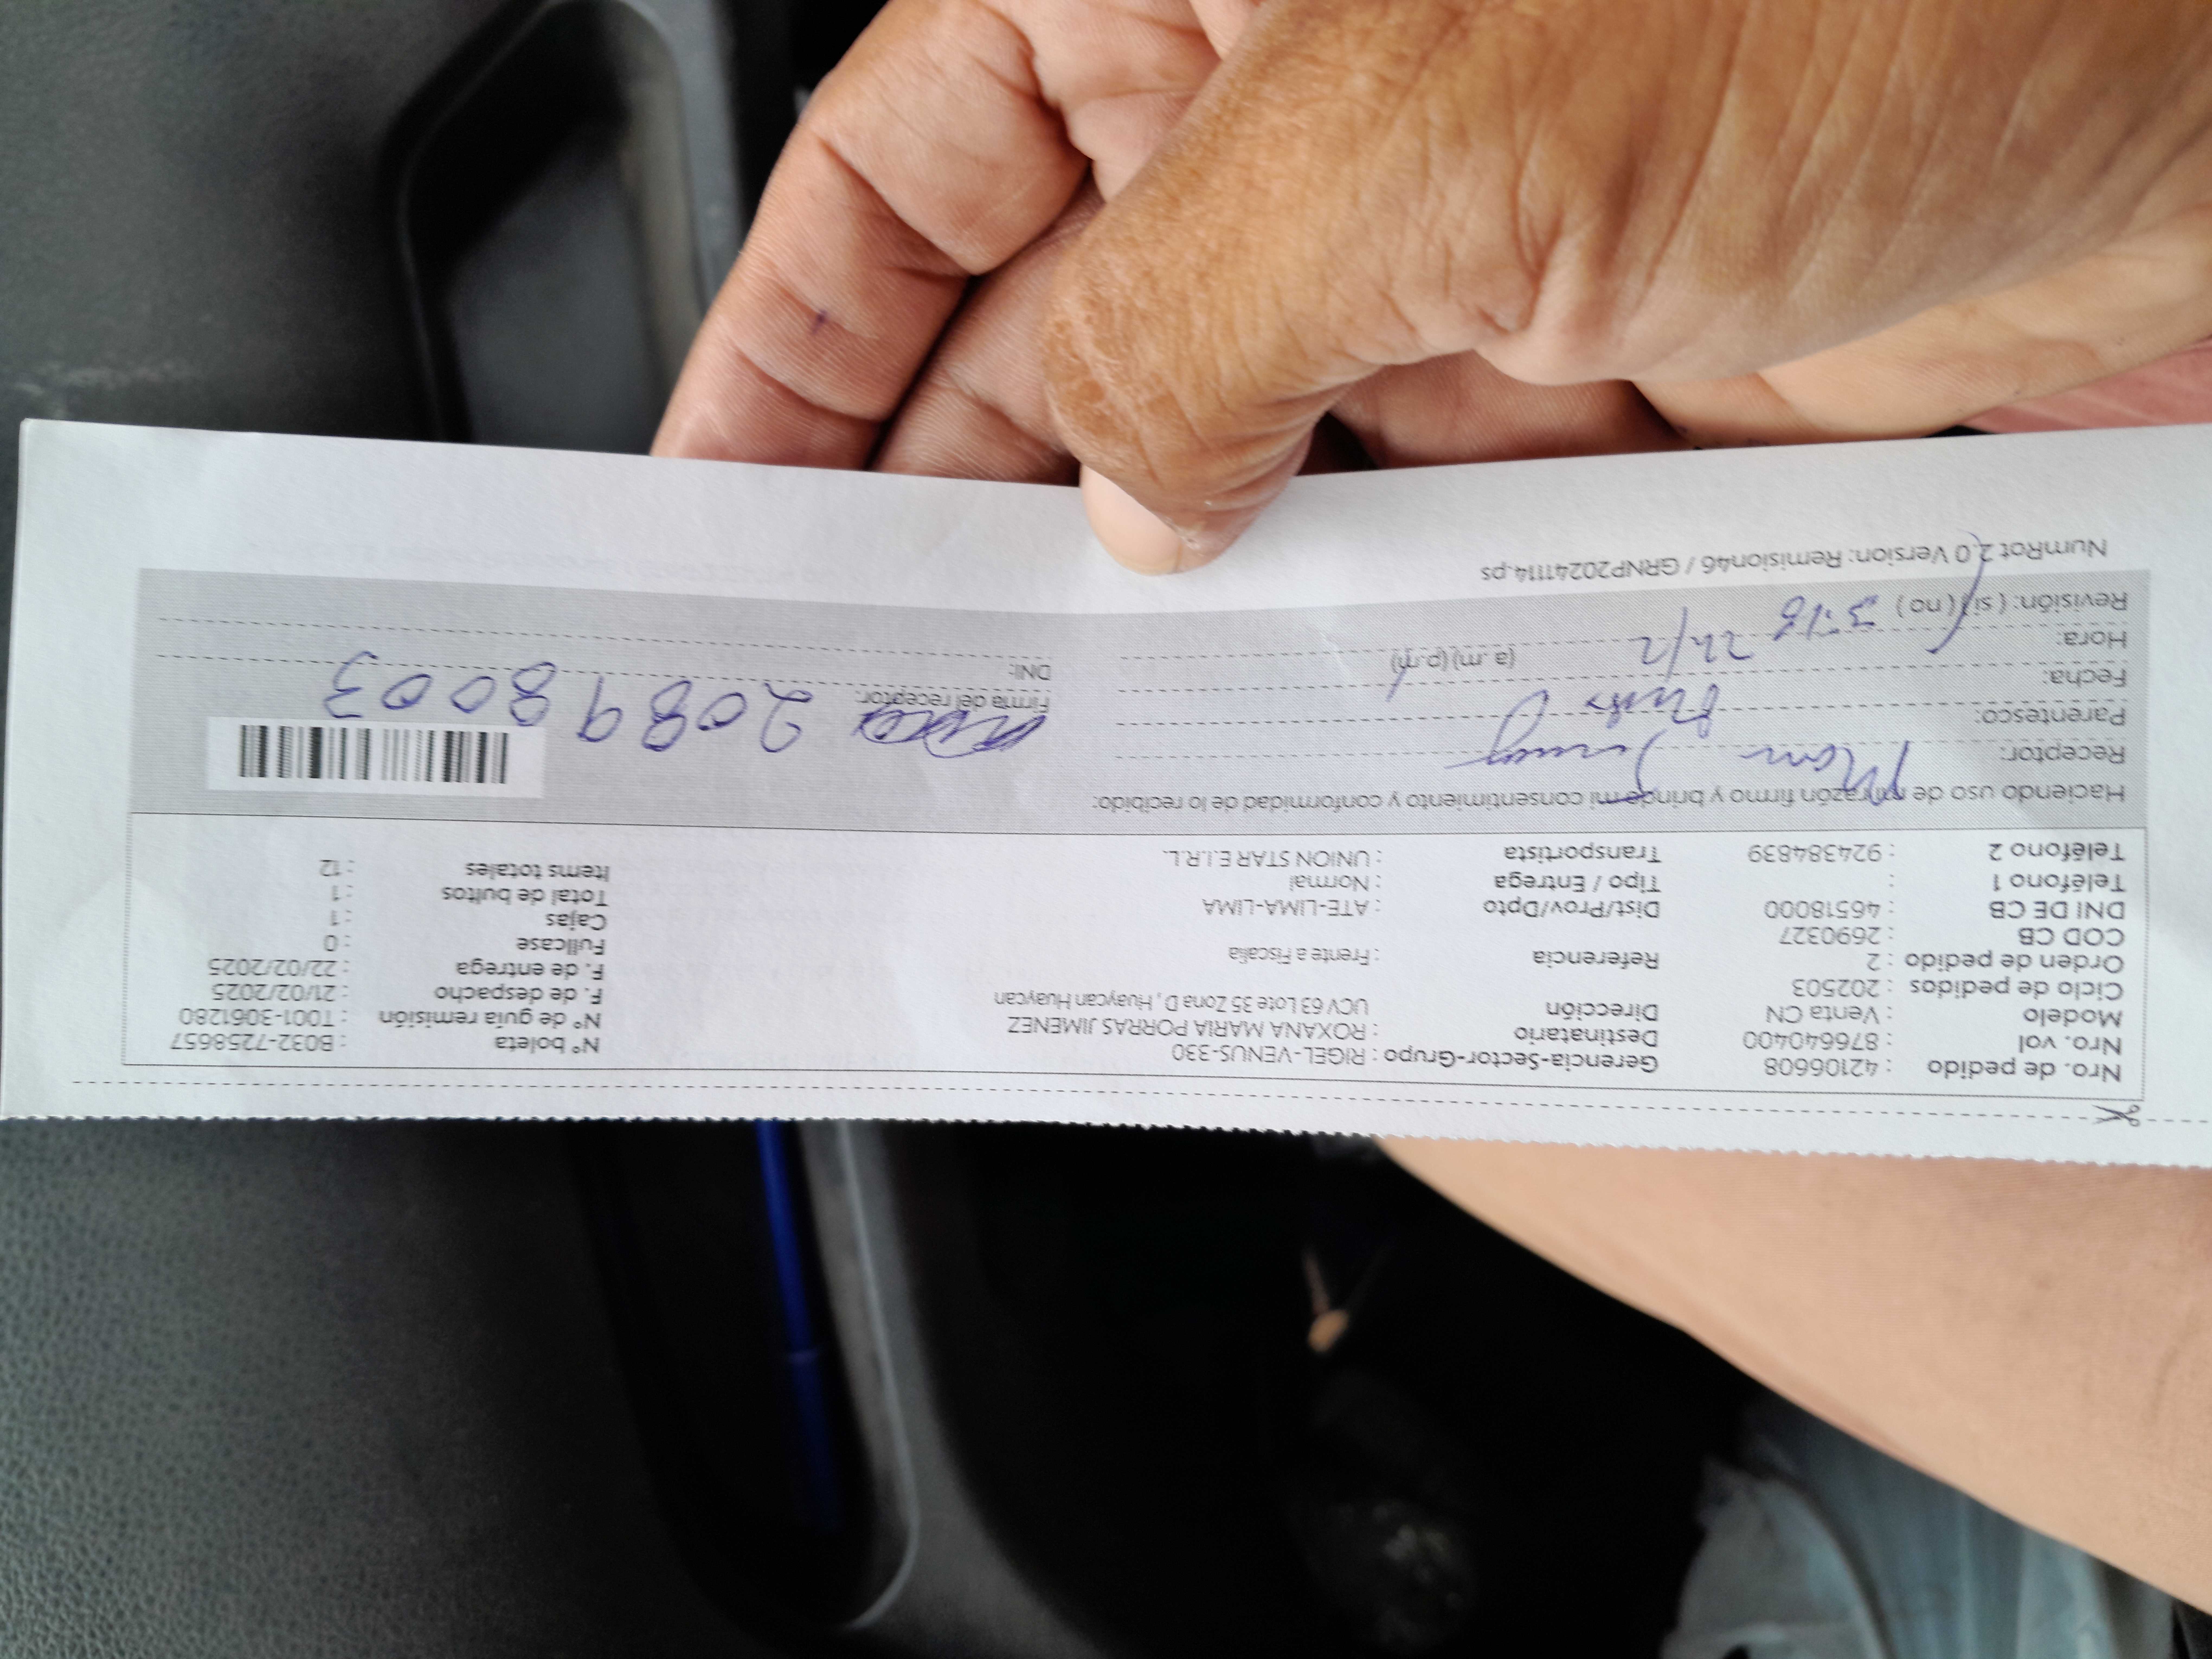 Nro. de pedido : 42106608 Gerencia-Sector-Grupo : RIGEL-VENUS-330 N° boleta : B032-7258657
Nro. vol : 876640400 Destinatario : ROXANA MARIA PORRAS JIMENEZ N° de guía remisión : T001-3061280
Modelo : Venta CN Dirección UCV 63 Lote 35 Zona D, Huaycan Huaycan F. de despacho : 21/02/2025
Ciclo de pedidos : 202503 F. de entrega : 22/02/2025
Orden de pedido : 2 Referencia : Frente a Fiscalia Fullcase : 0
COD CB : 2690327 Cajas : 1
DNI DE CB : 46518000 Dist/Prov/Dpto : ATE-LIMA-LIMA Total de bultos : 1
Teléfono 1 : Tipo / Entrega : Normal Items totales : 12
Teléfono 2 : 924384839 Transportista : UNION STAR E.I.R.L.
Haciendo uso de mi razón firmo y brindo mi consentimiento y conformidad de lo recibido:
Receptor:
Parentesco: Firma del receptor: 20898003
Fecha: DNI:
Hora: 22/2 (a.m) (p.m)
Revisión: (si) (no) 3:18
NumRot 2.0 Version: Remision46 / GRNP20241114.ps